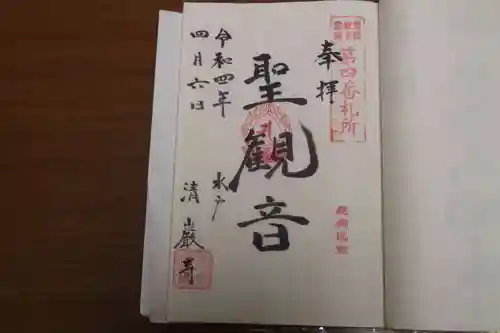 奉拝
第四番札所
聖観音
水戸
清巖寺
令和四年
四月六日